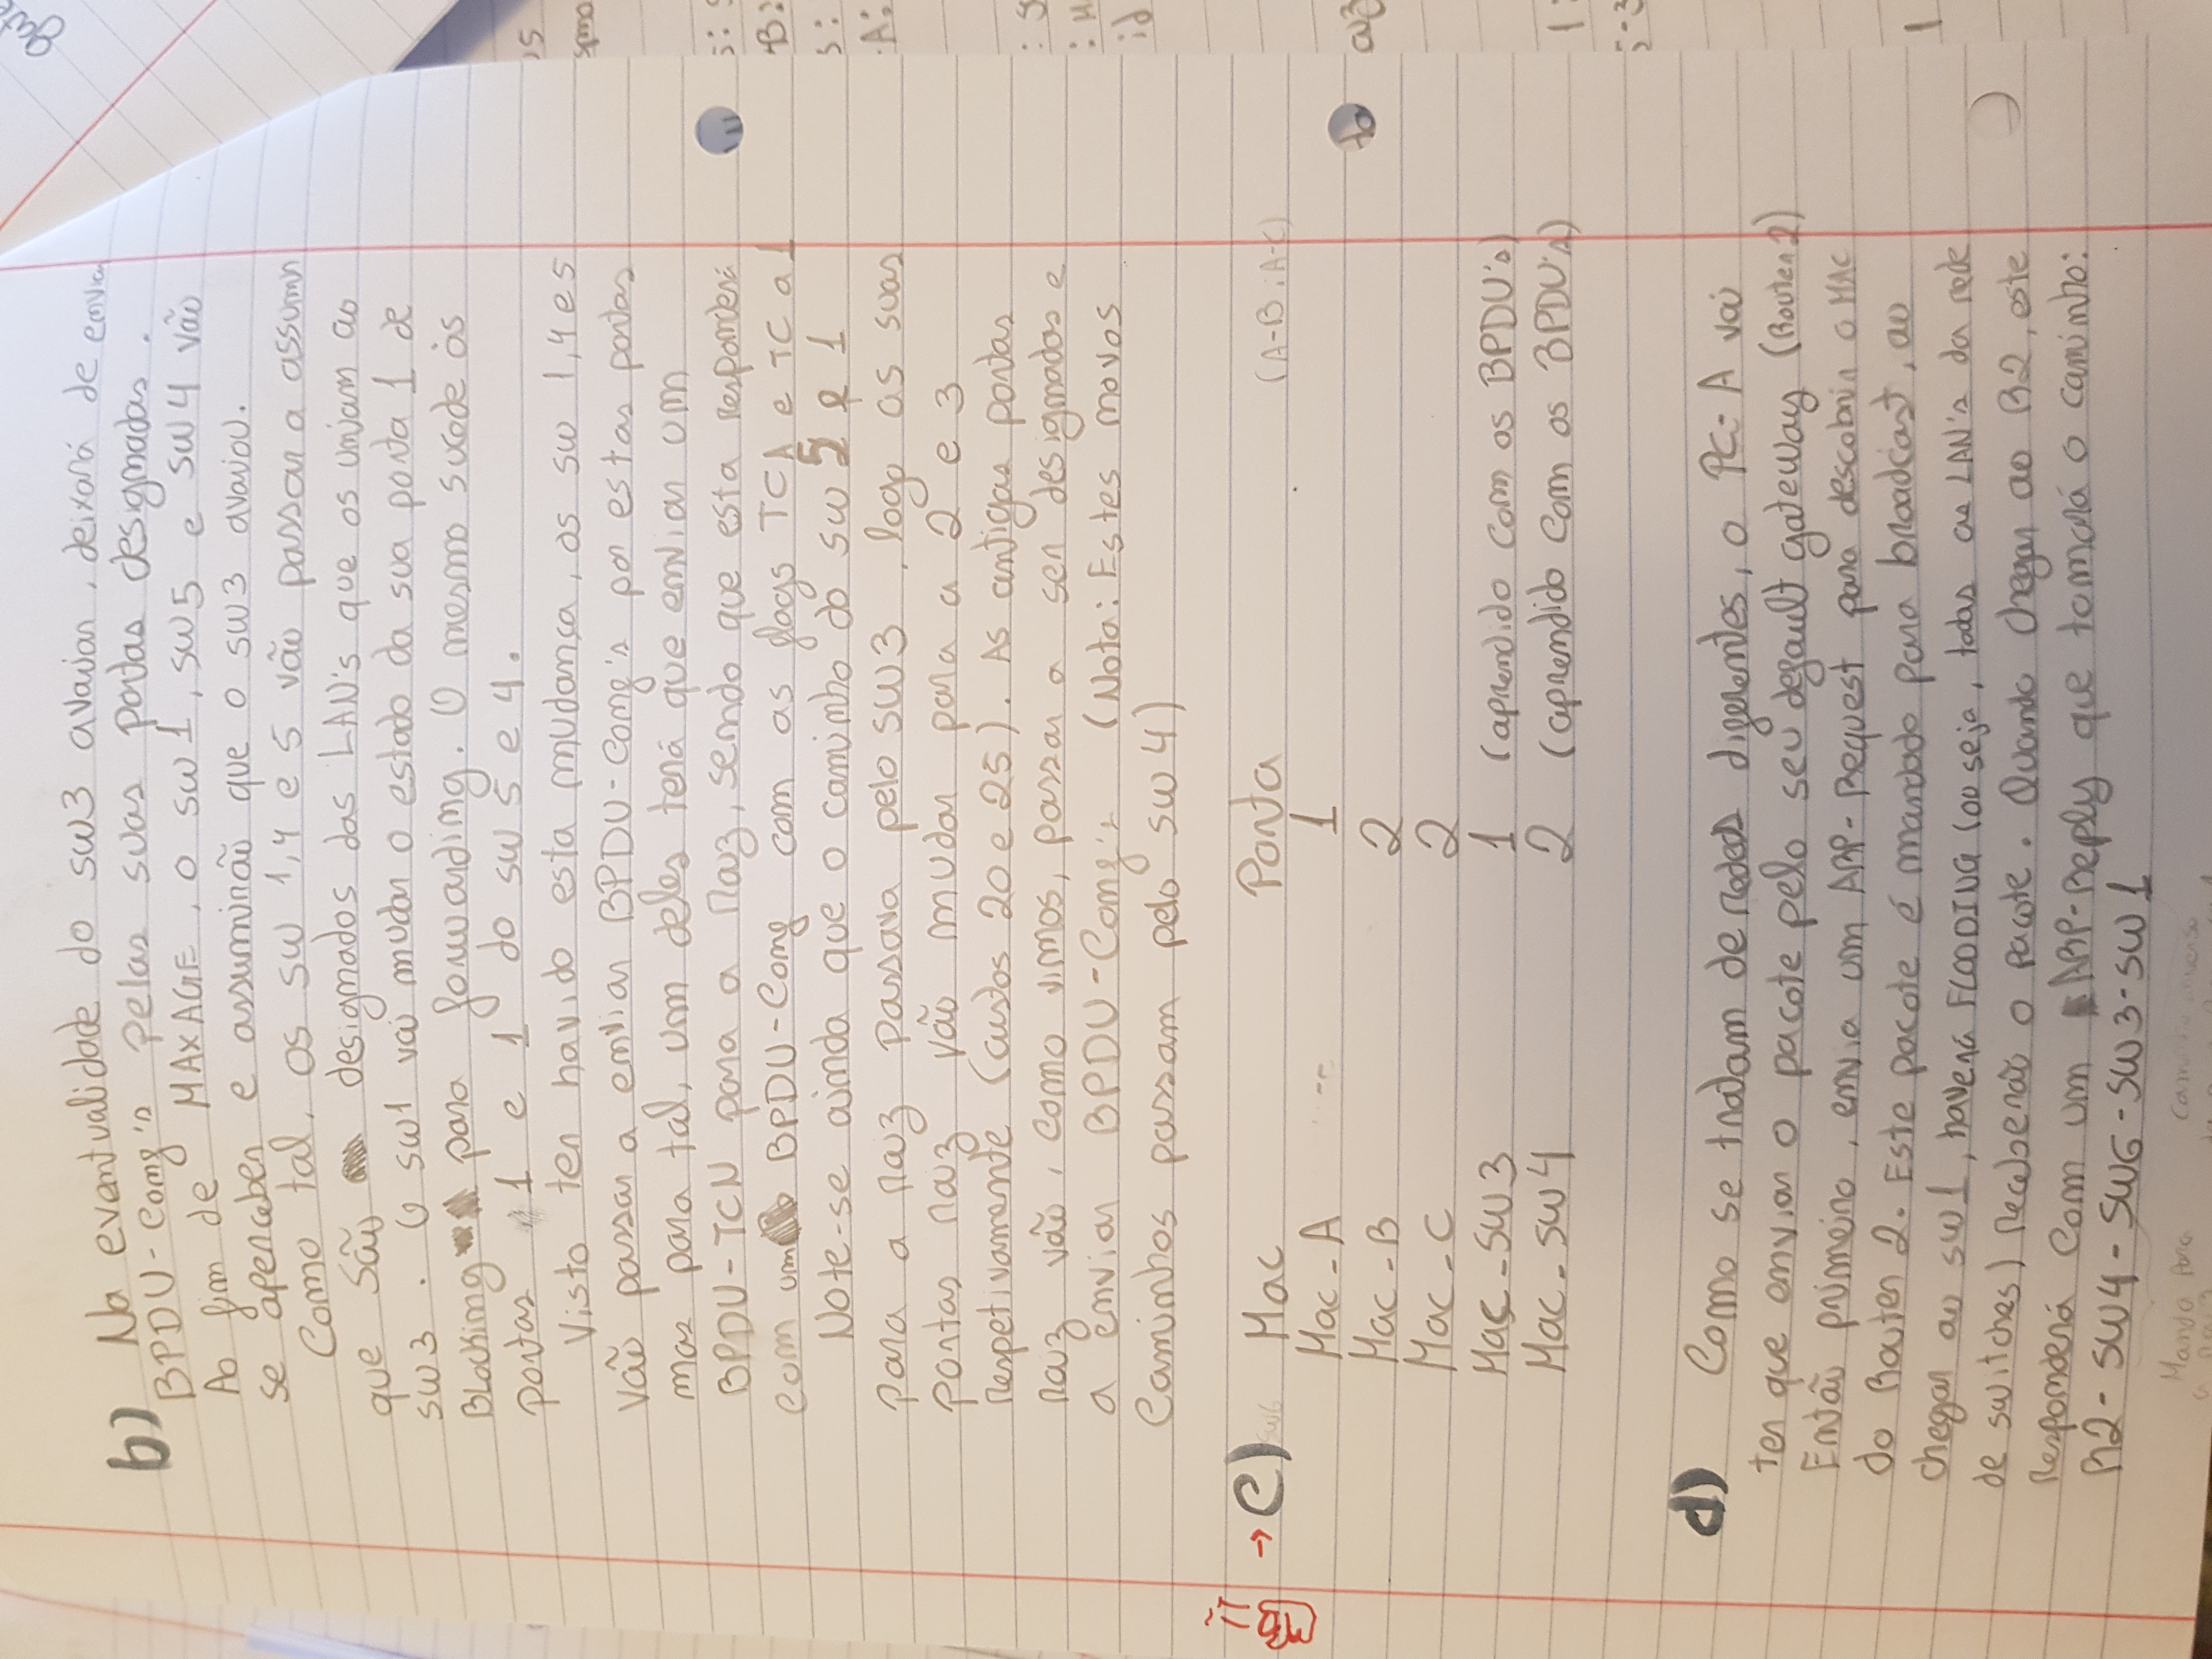 b) Na eventualidade do sw3 avariar, deixará de enviar
BPDU-Conf's pelas suas portas designadas.
Ao fim de MAXAGE, o sw1, sw5 e sw4 vão
se aperceber e assumirão que o sw3 avariou.
Como tal, os sw 1,4 e 5 vão passar a assumir
que são designados das LAN's que os uniam ao
sw3. O sw1 vai mudar o estado da sua porta 1 de
Blocking para forwarding. O mesmo sucede às
portas 1 e 1 do sw 5 e 4.
Visto ter havido esta mudança, os sw 1,4 e 5
vão passar a enviar BPDU-Conf's por estas portas
mas para tal, um deles terá que enviar um
BPDU-TCN para a raiz, sendo que esta responderá
com um BPDU-Conf com as flags TCA e TC a 1
Note-se ainda que o caminho do sw 5 e 1
para a raiz passava pelo sw3, logo as suas
portas raiz vão mudar para a 2 e 3
respetivamente (custos 20 e 25). As antigas portas
raiz vão, como vimos, passar a ser designadas e
a enviar BPDU-Conf's (Nota: Estes novos
caminhos passam pelo sw4)
→ c) sw6 Mac Porta (A-B; A-C)
Mac-A 1
Mac-B 2
Mac-C 2
Mac-SW3 1 (aprendido com os BPDU's)
Mac-SW4 2 (aprendido com os BPDU's)
d) Como se tratam de redes diferentes, o PC-A vai
ter que enviar o pacote pelo seu default gateway (Router 2)
Então primeiro, envia um ARP-Request para descobrir o MAC
do Router 2. Este pacote é mandado para broadcast, ao
chegar ao sw1, haverá FLOODING (ou seja, todas as LAN's da rede
de switches) receberão o pacote. Quando chegar ao R2, este
responderá com um ARP-Reply que tomará o caminho:
R2-SW4-SW6-SW3-SW1
Manda para
a raiz
Caminho inverso